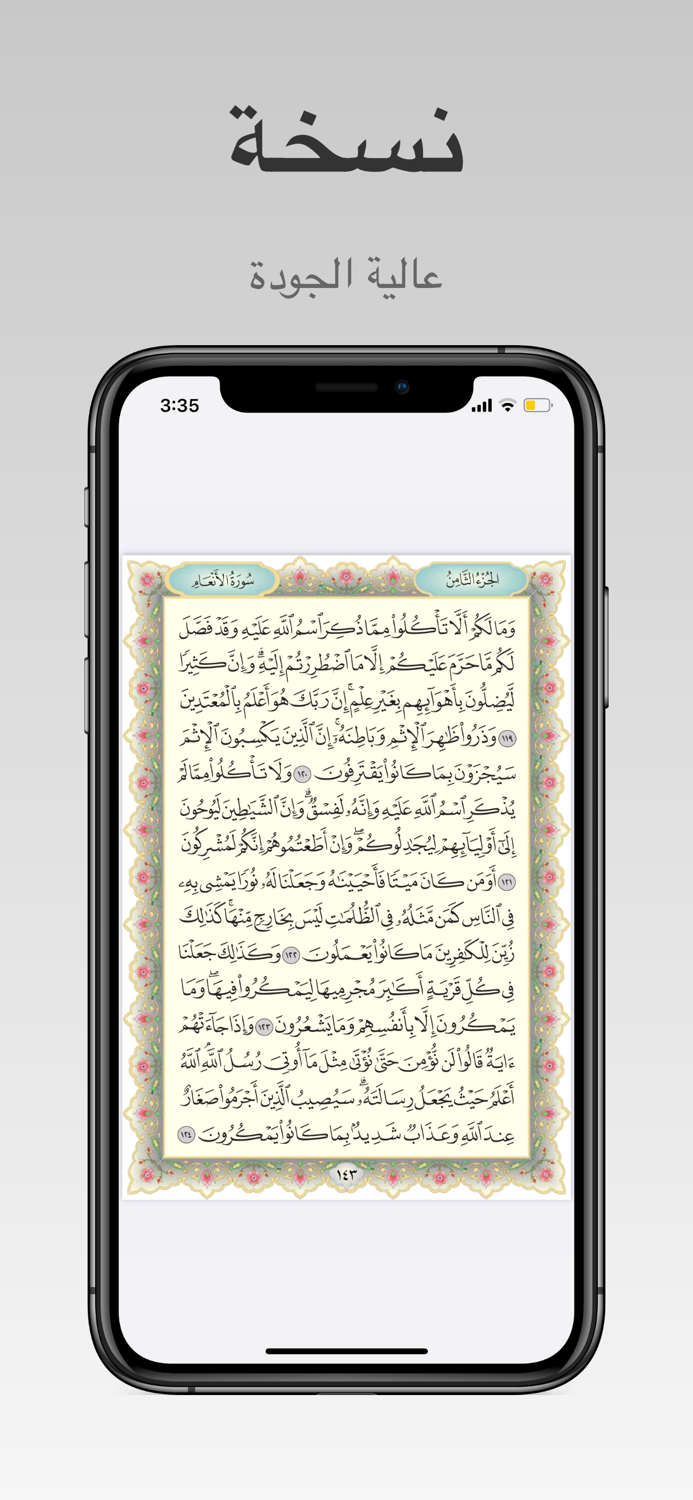 نسخة
عالية الجودة
3:35
الجُزْءُ الثَّامِنُ
سُورَةُ الأَنْعَامِ
وَمَا لَكُمْ أَلَّا تَأْكُلُوا۟ مِمَّا ذُكِرَ ٱسْمُ ٱللَّهِ عَلَيْهِ وَقَدْ فَصَّلَ
لَكُم مَّا حَرَّمَ عَلَيْكُمْ إِلَّا مَا ٱضْطُرِرْتُمْ إِلَيْهِ ۗ وَإِنَّ كَثِيرًا
لَّيُضِلُّونَ بِأَهْوَآئِهِم بِغَيْرِ عِلْمٍ ۗ إِنَّ رَبَّكَ هُوَ أَعْلَمُ بِٱلْمُعْتَدِينَ
١١٩ وَذَرُوا۟ ظَٰهِرَ ٱلْإِثْمِ وَبَاطِنَهُۥٓ ۚ إِنَّ ٱلَّذِينَ يَكْسِبُونَ ٱلْإِثْمَ
سَيُجْزَوْنَ بِمَا كَانُوا۟ يَقْتَرِفُونَ ١٢٠ وَلَا تَأْكُلُوا۟ مِمَّا لَمْ
يُذْكَرِ ٱسْمُ ٱللَّهِ عَلَيْهِ وَإِنَّهُۥ لَفِسْقٌ ۗ وَإِنَّ ٱلشَّيَٰطِينَ لَيُوحُونَ
إِلَىٰٓ أَوْلِيَآئِهِمْ لِيُجَٰدِلُوكُمْ ۖ وَإِنْ أَطَعْتُمُوهُمْ إِنَّكُمْ لَمُشْرِكُونَ
١٢١ أَوَمَن كَانَ مَيْتًا فَأَحْيَيْنَٰهُ وَجَعَلْنَا لَهُۥ نُورًا يَمْشِى بِهِۦ
فِى ٱلنَّاسِ كَمَن مَّثَلُهُۥ فِى ٱلظُّلُمَٰتِ لَيْسَ بِخَارِجٍ مِّنْهَا ۚ كَذَٰلِكَ
زُيِّنَ لِلْكَٰفِرِينَ مَا كَانُوا۟ يَعْمَلُونَ ١٢٢ وَكَذَٰلِكَ جَعَلْنَا
فِى كُلِّ قَرْيَةٍ أَكَٰبِرَ مُجْرِمِيهَا لِيَمْكُرُوا۟ فِيهَا ۖ وَمَا
يَمْكُرُونَ إِلَّا بِأَنفُسِهِمْ وَمَا يَشْعُرُونَ ١٢٣ وَإِذَا جَآءَتْهُمْ
ءَايَةٌ قَالُوا۟ لَن نُّؤْمِنَ حَتَّىٰ نُؤْتَىٰ مِثْلَ مَآ أُوتِىَ رُسُلُ ٱللَّهِ ۘ ٱللَّهُ
أَعْلَمُ حَيْثُ يَجْعَلُ رِسَالَتَهُۥ ۗ سَيُصِيبُ ٱلَّذِينَ أَجْرَمُوا۟ صَغَارٌ
عِندَ ٱللَّهِ وَعَذَابٌ شَدِيدٌۢ بِمَا كَانُوا۟ يَمْكُرُونَ ١٢٤
١٤٣